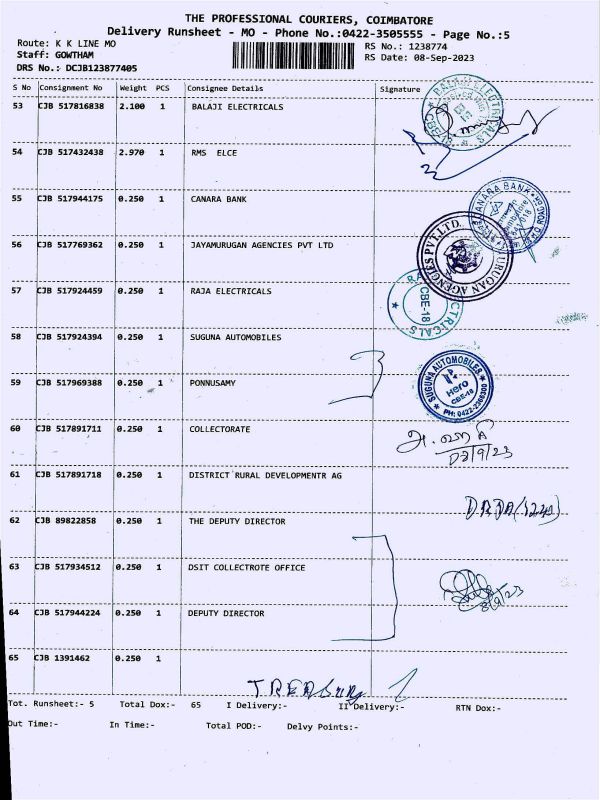 THE PROFESSIONAL COURIERS, COIMBATORE
Delivery Runsheet - MO - Phone No.:0422-3505555 - Page No.:5
Route: K K LINE MO
RS No.: 1238774
Staff: GOWTHAM
RS Date: 08-Sep-2023
DRS No.: DCJB123877405
S No Consignment No Weight PCS Consignee Details Signature
53 CJB 517816838 2.100 1 BALAJI ELECTRICALS
54 CJB 517432438 2.970 1 RMS ELCE
55 CJB 517944175 0.250 1 CANARA BANK
CANARA BANK
56 CJB 517769362 0.250 1 JAYAMURUGAN AGENCIES PVT LTD
URUGAN AGENCIES PVT.LTD.
57 CJB 517924459 0.250 1 RAJA ELECTRICALS
CBE-18
58 CJB 517924394 0.250 1 SUGUNA AUTOMOBILES
SUGUNA AUTOMOBILES
Hero
CBE-18
PH: 0422-2366300
59 CJB 517969388 0.250 1 PONNUSAMY
60 CJB 517891711 0.250 1 COLLECTORATE
08/9/23
61 CJB 517891718 0.250 1 DISTRICT RURAL DEVELOPMENTR AG
62 CJB 89822858 0.250 1 THE DEPUTY DIRECTOR
63 CJB 517934512 0.250 1 DSIT COLLECTROTE OFFICE
8/9/23
64 CJB 517944224 0.250 1 DEPUTY DIRECTOR
65 CJB 1391462 0.250 1
TREASURY
Tot. Runsheet:- 5 Total Dox:- 65 I Delivery:- II Delivery:- RTN Dox:-
Out Time:- In Time:- Total POD:- Delvy Points:-